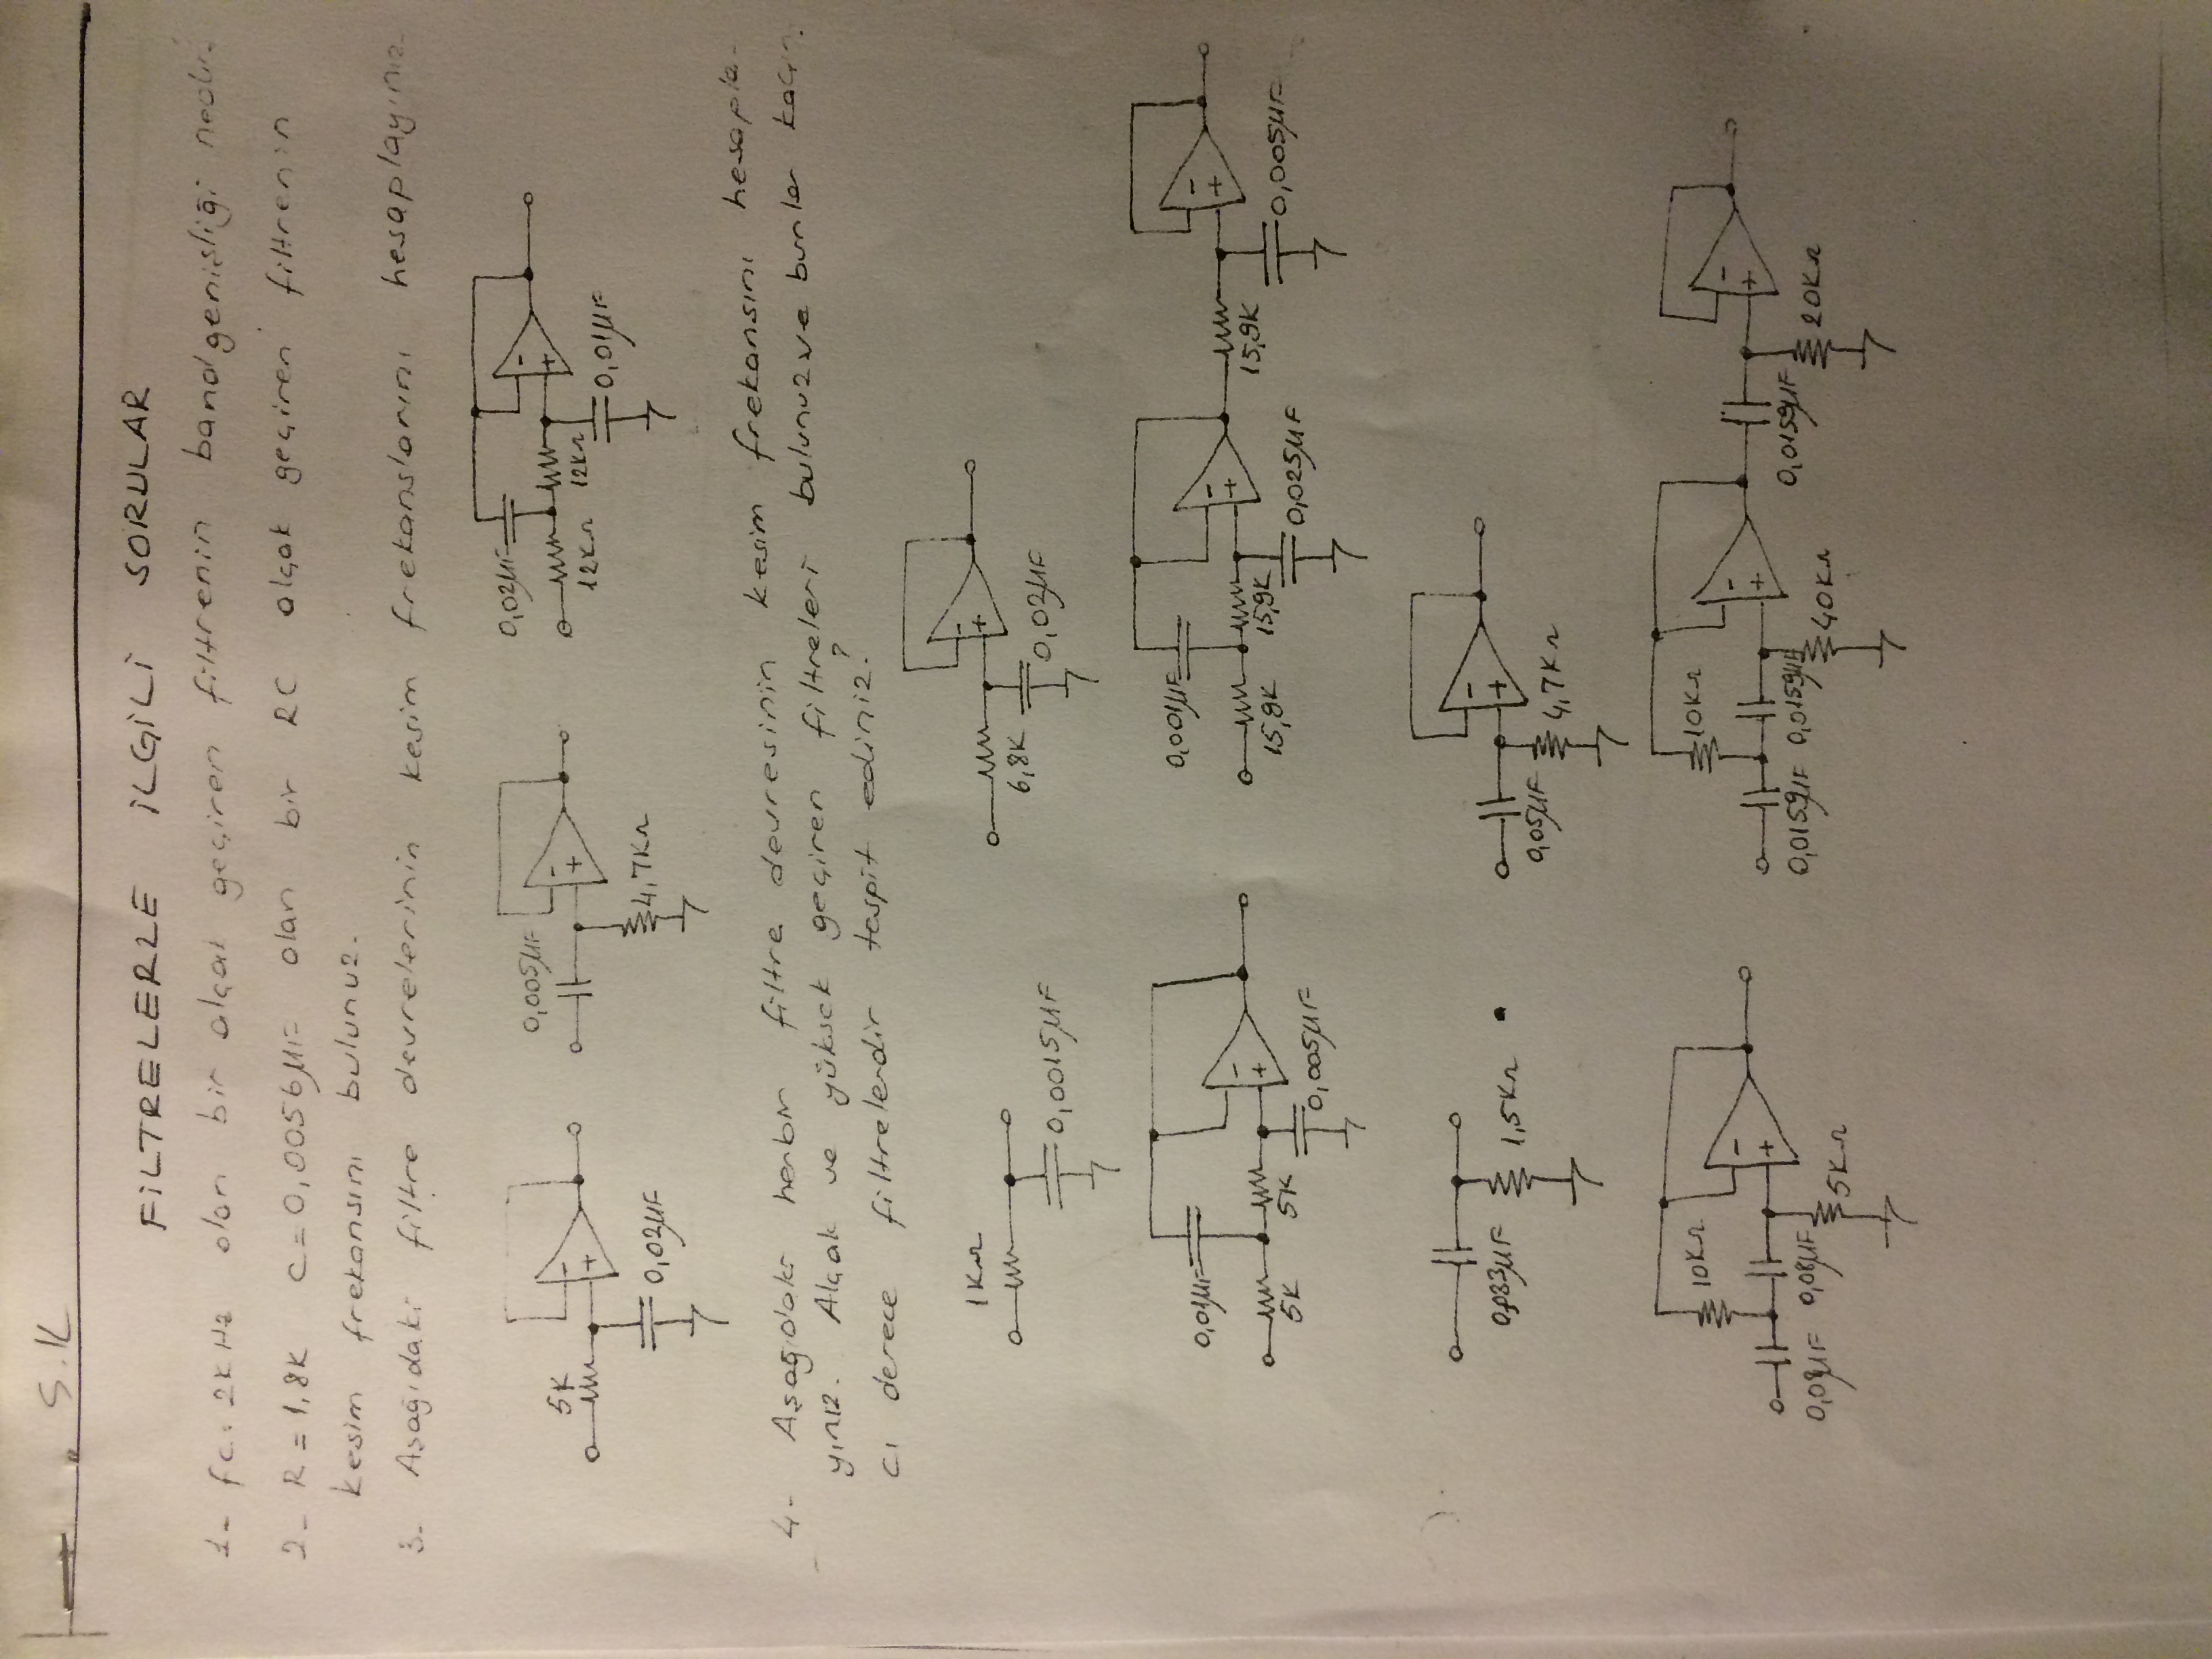 S.K
FİLTRELERLE İLGİLİ SORULAR
1- fc= 2KHz olan bir alçak geçiren filtrenin bandgenişliği nedir.
2- R = 1,8K C = 0,0056µF olan bir RC alçak geçiren filtrenin
kesim frekansını bulunuz.
3- Aşağıdaki filtre devrelerinin kesim frekanslarını hesaplayınız.
5K 0,02µF
0,005µF 4,7KΩ
0,02µF 12KΩ 12KΩ 0,01µF
4- Aşağıdaki herbir filtre devresinin kesim frekansını hesapla-
yınız. Alçak ve yüksek geçiren filtreleri bulunuz ve bunlar kaçın
cı derece filtrelerdir tespit ediniz?
1KΩ 0,0015µF
6,8K 0,02µF
0,01µF 5K 5K 0,005µF
0,001µF 15,9K 15,9K 0,025µF 15,9K 0,005µF
0,033µF 1,5KΩ
0,05µF 4,7KΩ
10KΩ 0,08µF 0,08µF 5KΩ
10KΩ 0,0159µF 0,0159µF 40KΩ 0,0159µF 20KΩ